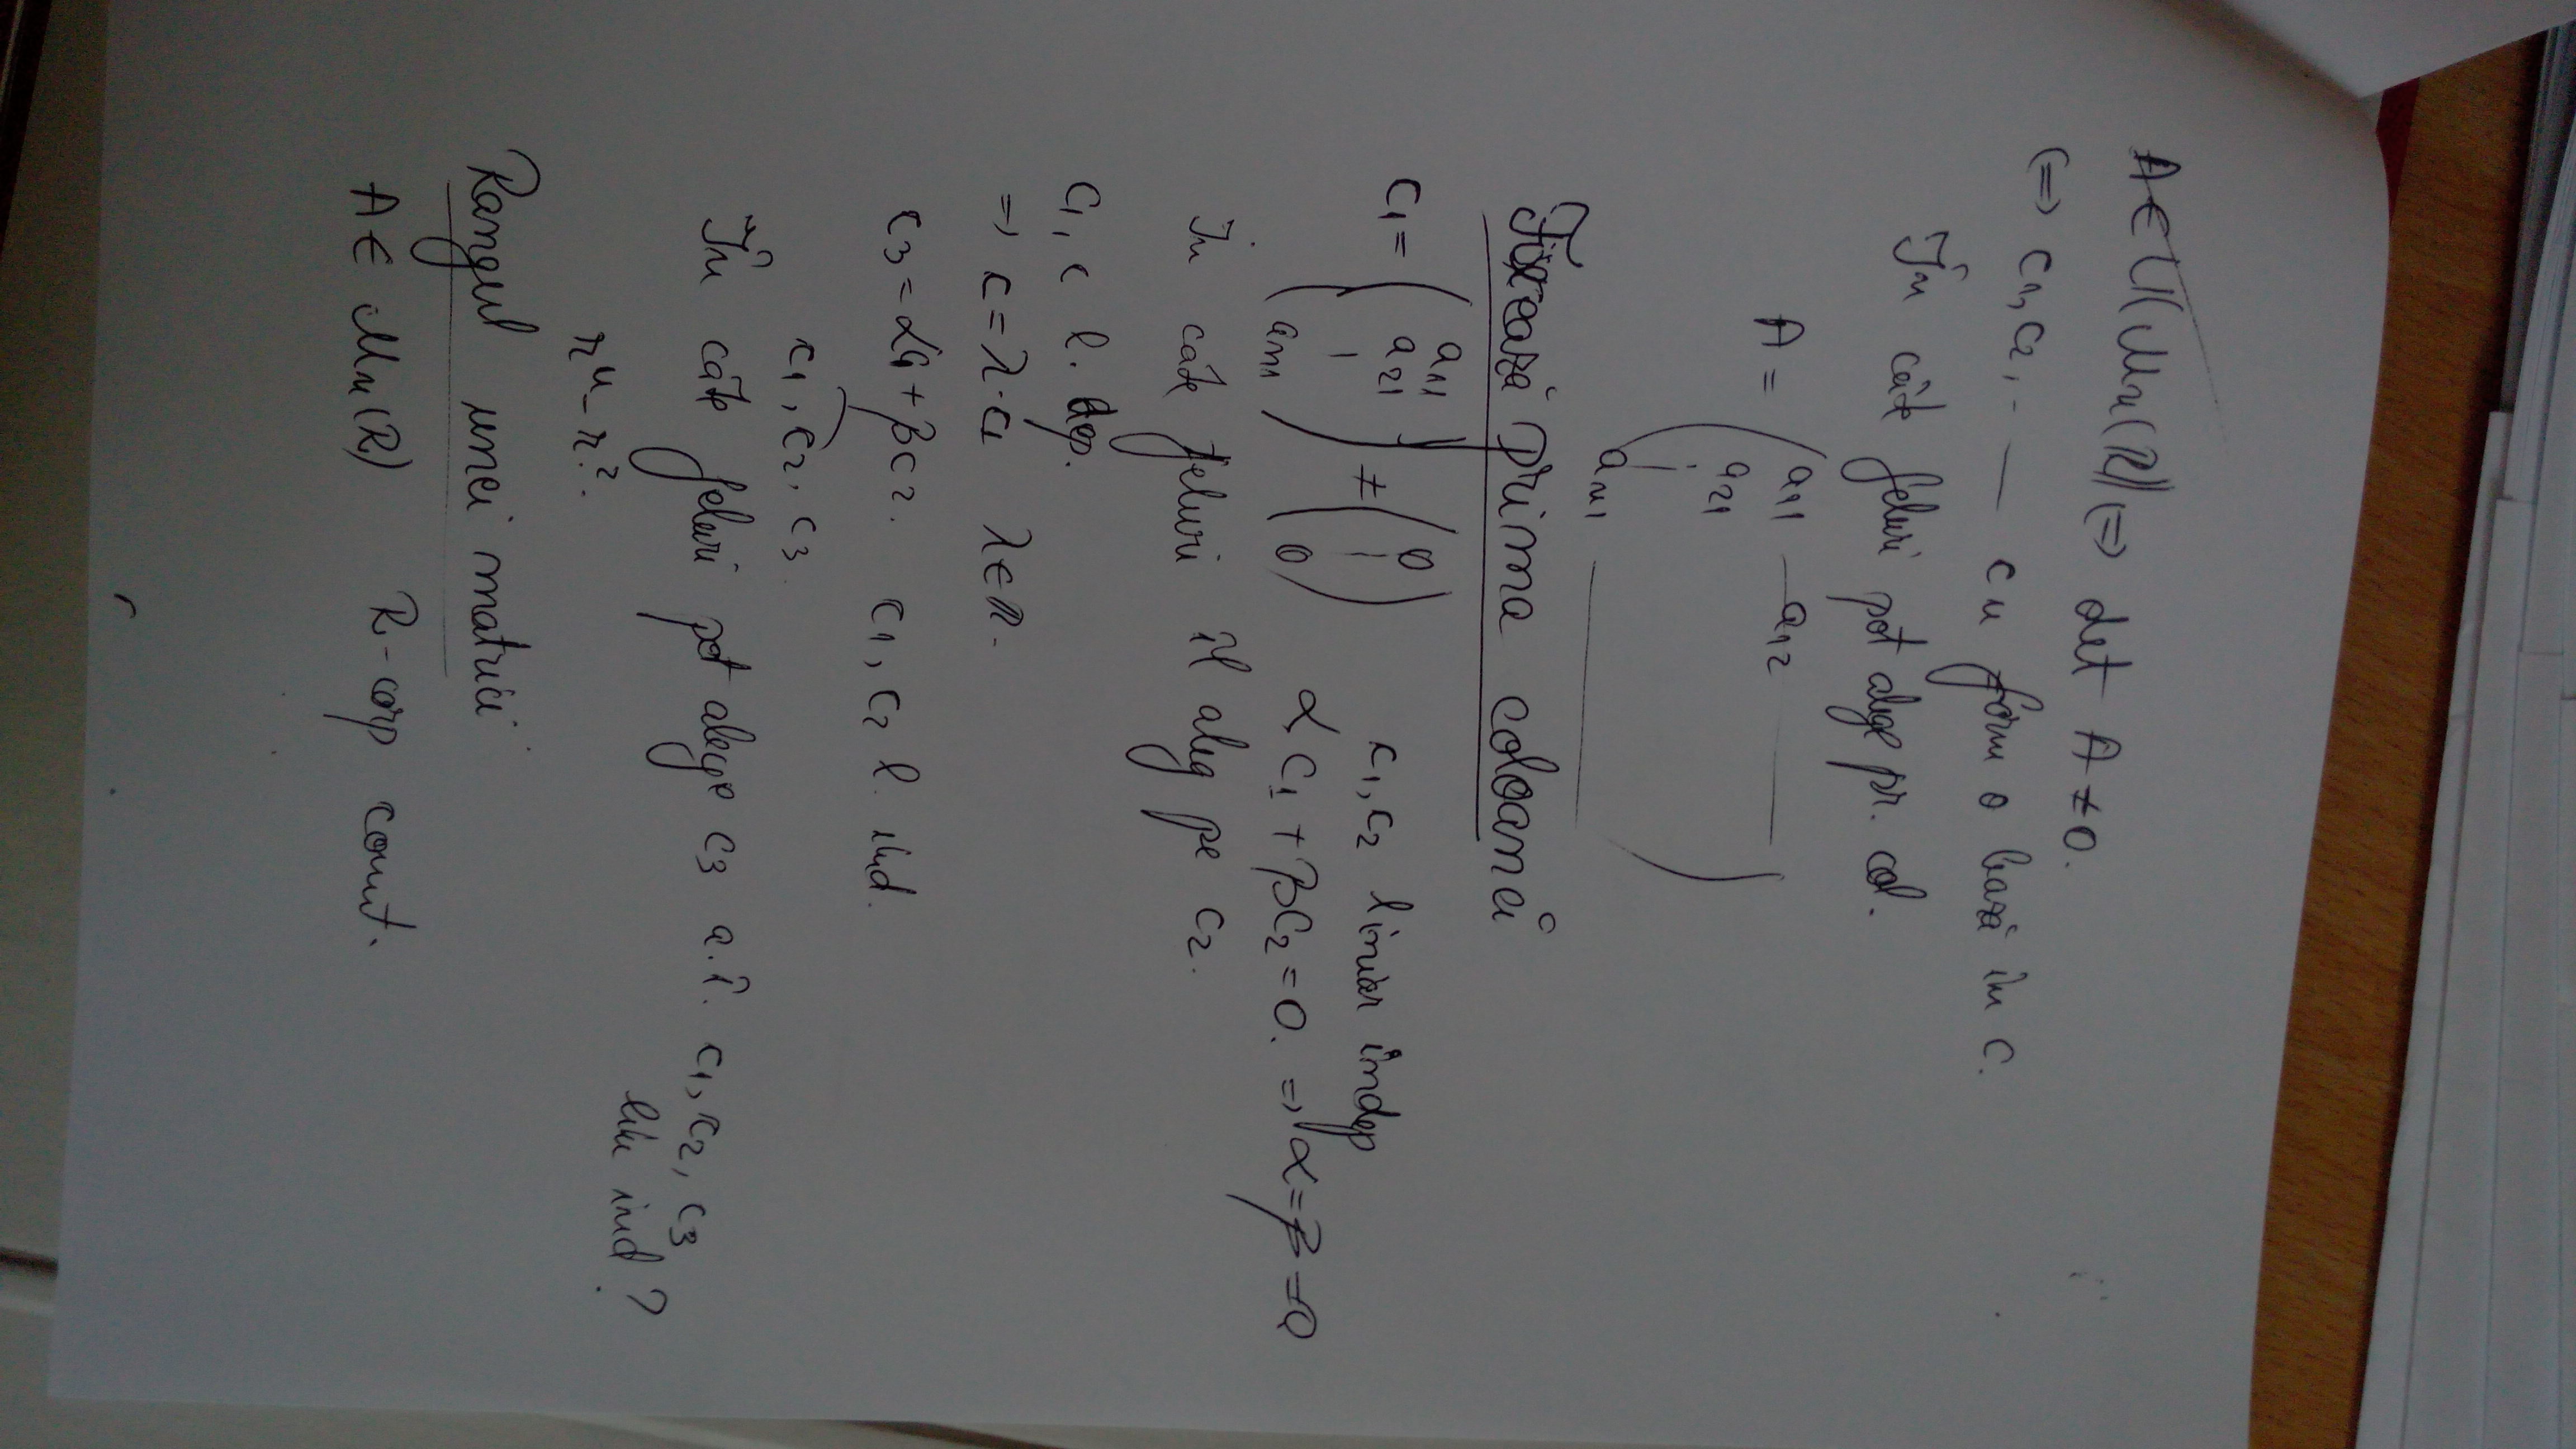 A ∈ U(Mn(R)) (=) det A ≠ 0.
(=) c1, c2, - — cn form o bază în C.
În câte feluri pot alege pr. col.
A = ( a11 — a12 —
a21
⋮
an1 — )
Fixează prima coloană
c1 = ( a11 a21 ⋮ an1 ) ≠ ( 0 ⋮ 0 ) c1, c2 liniar indep
α c1 + β c2 = 0. => α = β = 0
In cate feluri il aleg pe c2.
c1, c l. dep.
=> c = λ · c1 λ ∈ R.
c3 = αc1 + βc2. c1, c2 l. ind.
c1, c2, c3.
În câte feluri pot alege c3 a.î. c1, c2, c3
lin ind?
r^n - r^2.
Rangul unei matrici
A ∈ Mn(R) R - corp comut.